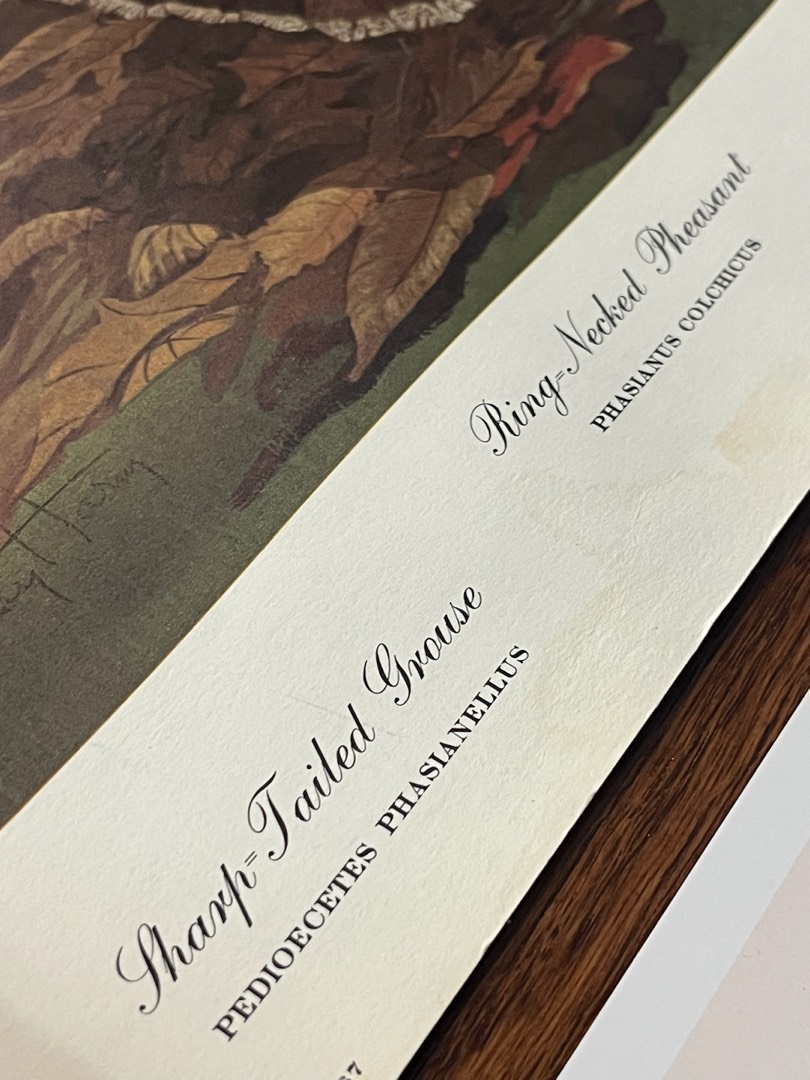 Sharp=Tailed Grouse
PEDIOECETES PHASIANELLUS
Ring=Necked Pheasant
PHASIANUS COLCHICUS
67